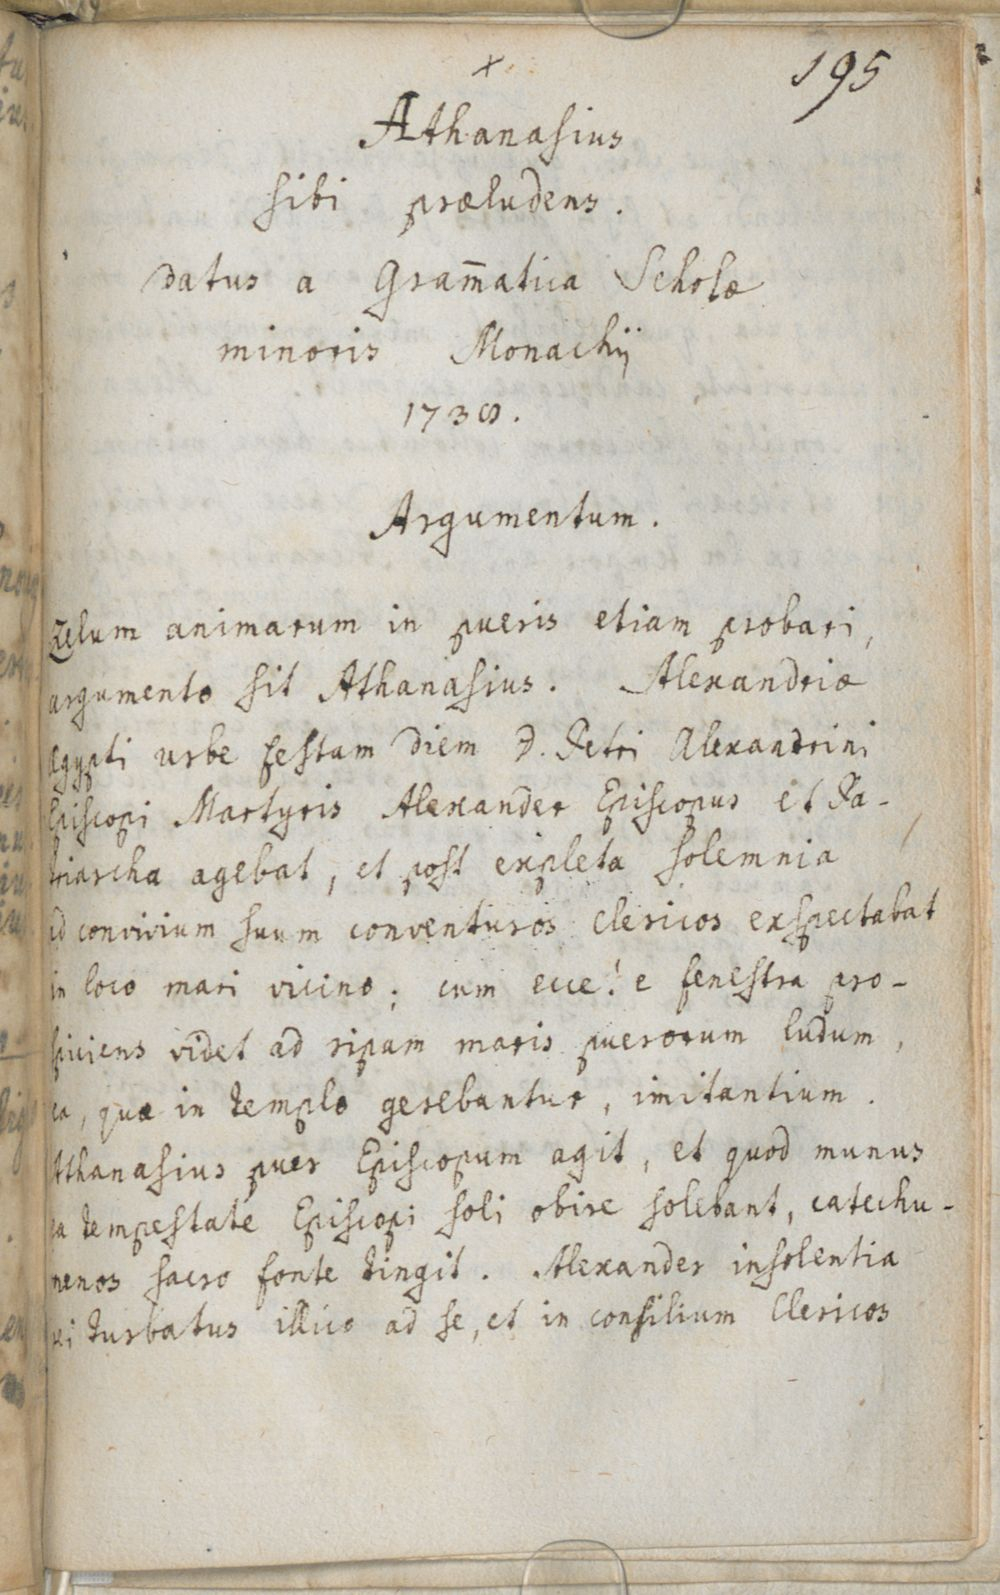 x
195
Athanasius
sibi præludens.
datus a Gram̄atica Scholæ
minoris Monachij
1738.
Argumentum.
Zelum animarum in pueris etiam probari,
argumento sit Athanasius. Alexandriæ
Ægypti urbe festam diem D. Petri Alexandrini
Episcopi Martyris Alexander Episcopus et Pa-
triarcha agebat, et post expleta solemnia
ad convivium suum conventuros Clericos exspectabat
in loco mari vicino; cum ecce! e fenestra pro-
spiciens videt ad ripam maris puerorum ludum,
ea, quæ in templo gerebantur, imitantium.
Athanasius puer Episcopum agit, et quod munus
ea tempestate Episcopi soli obire solebant, catechu-
menos sacro fonte tingit. Alexander insolentia
rei turbatus illico ad se, et in consilium Clericos